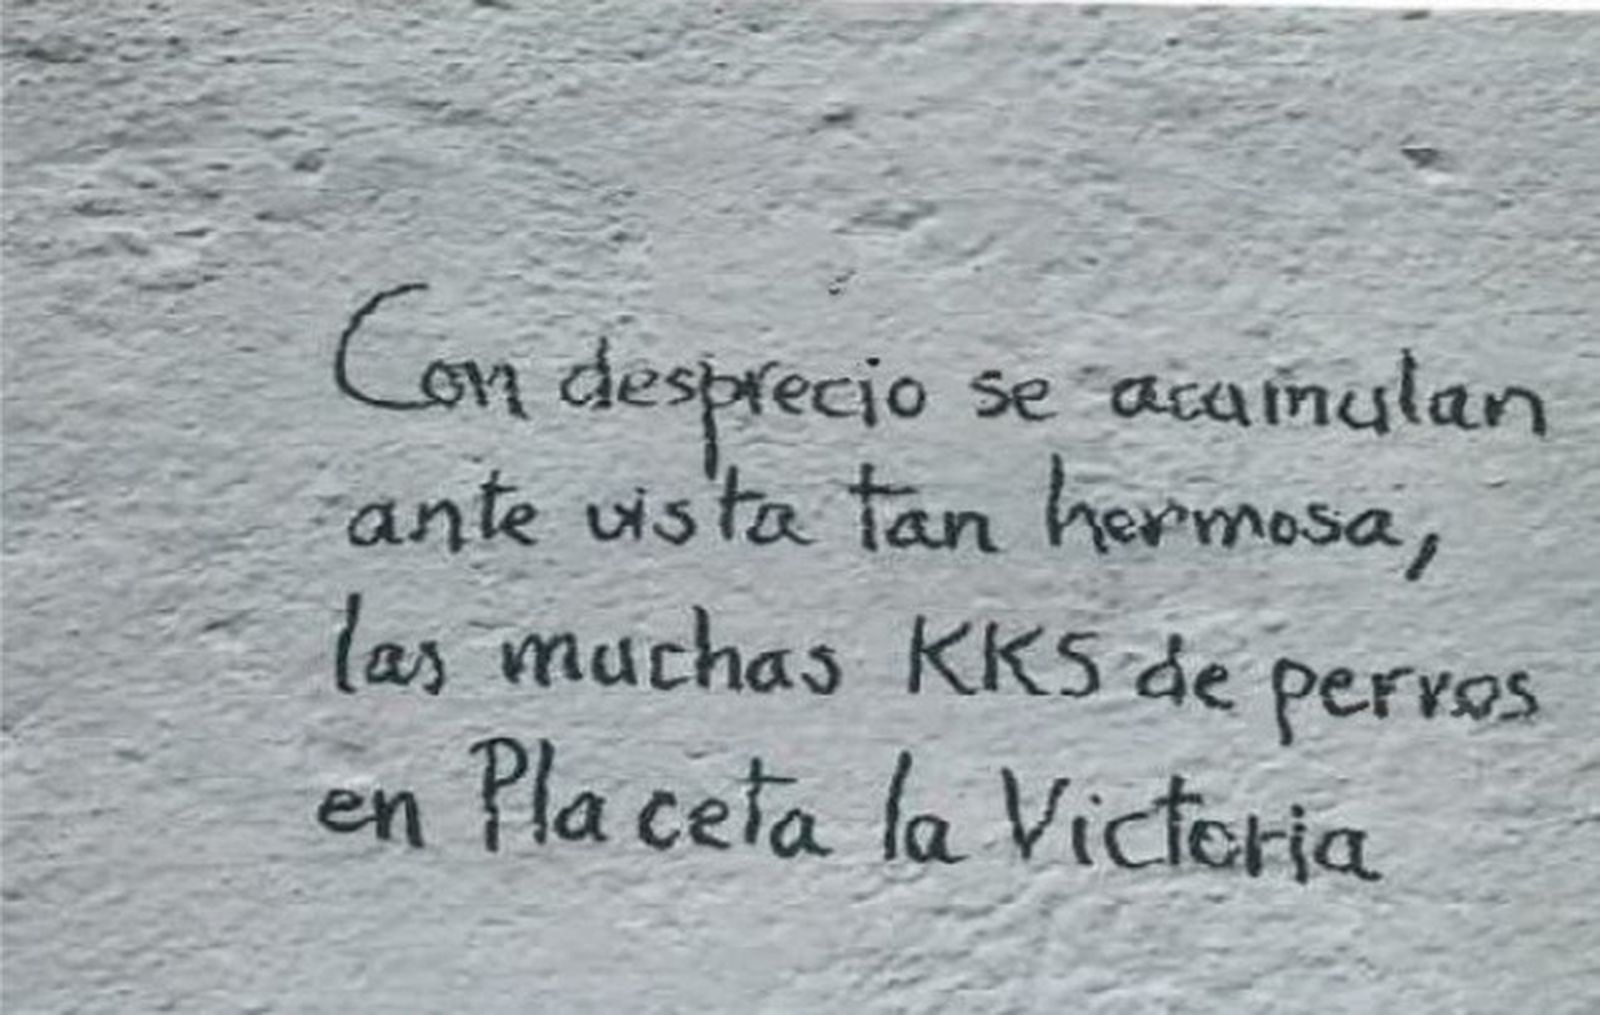 Con desprecio se acumulan
ante vista tan hermosa,
las muchas KKS de perros
en Placeta la Victoria